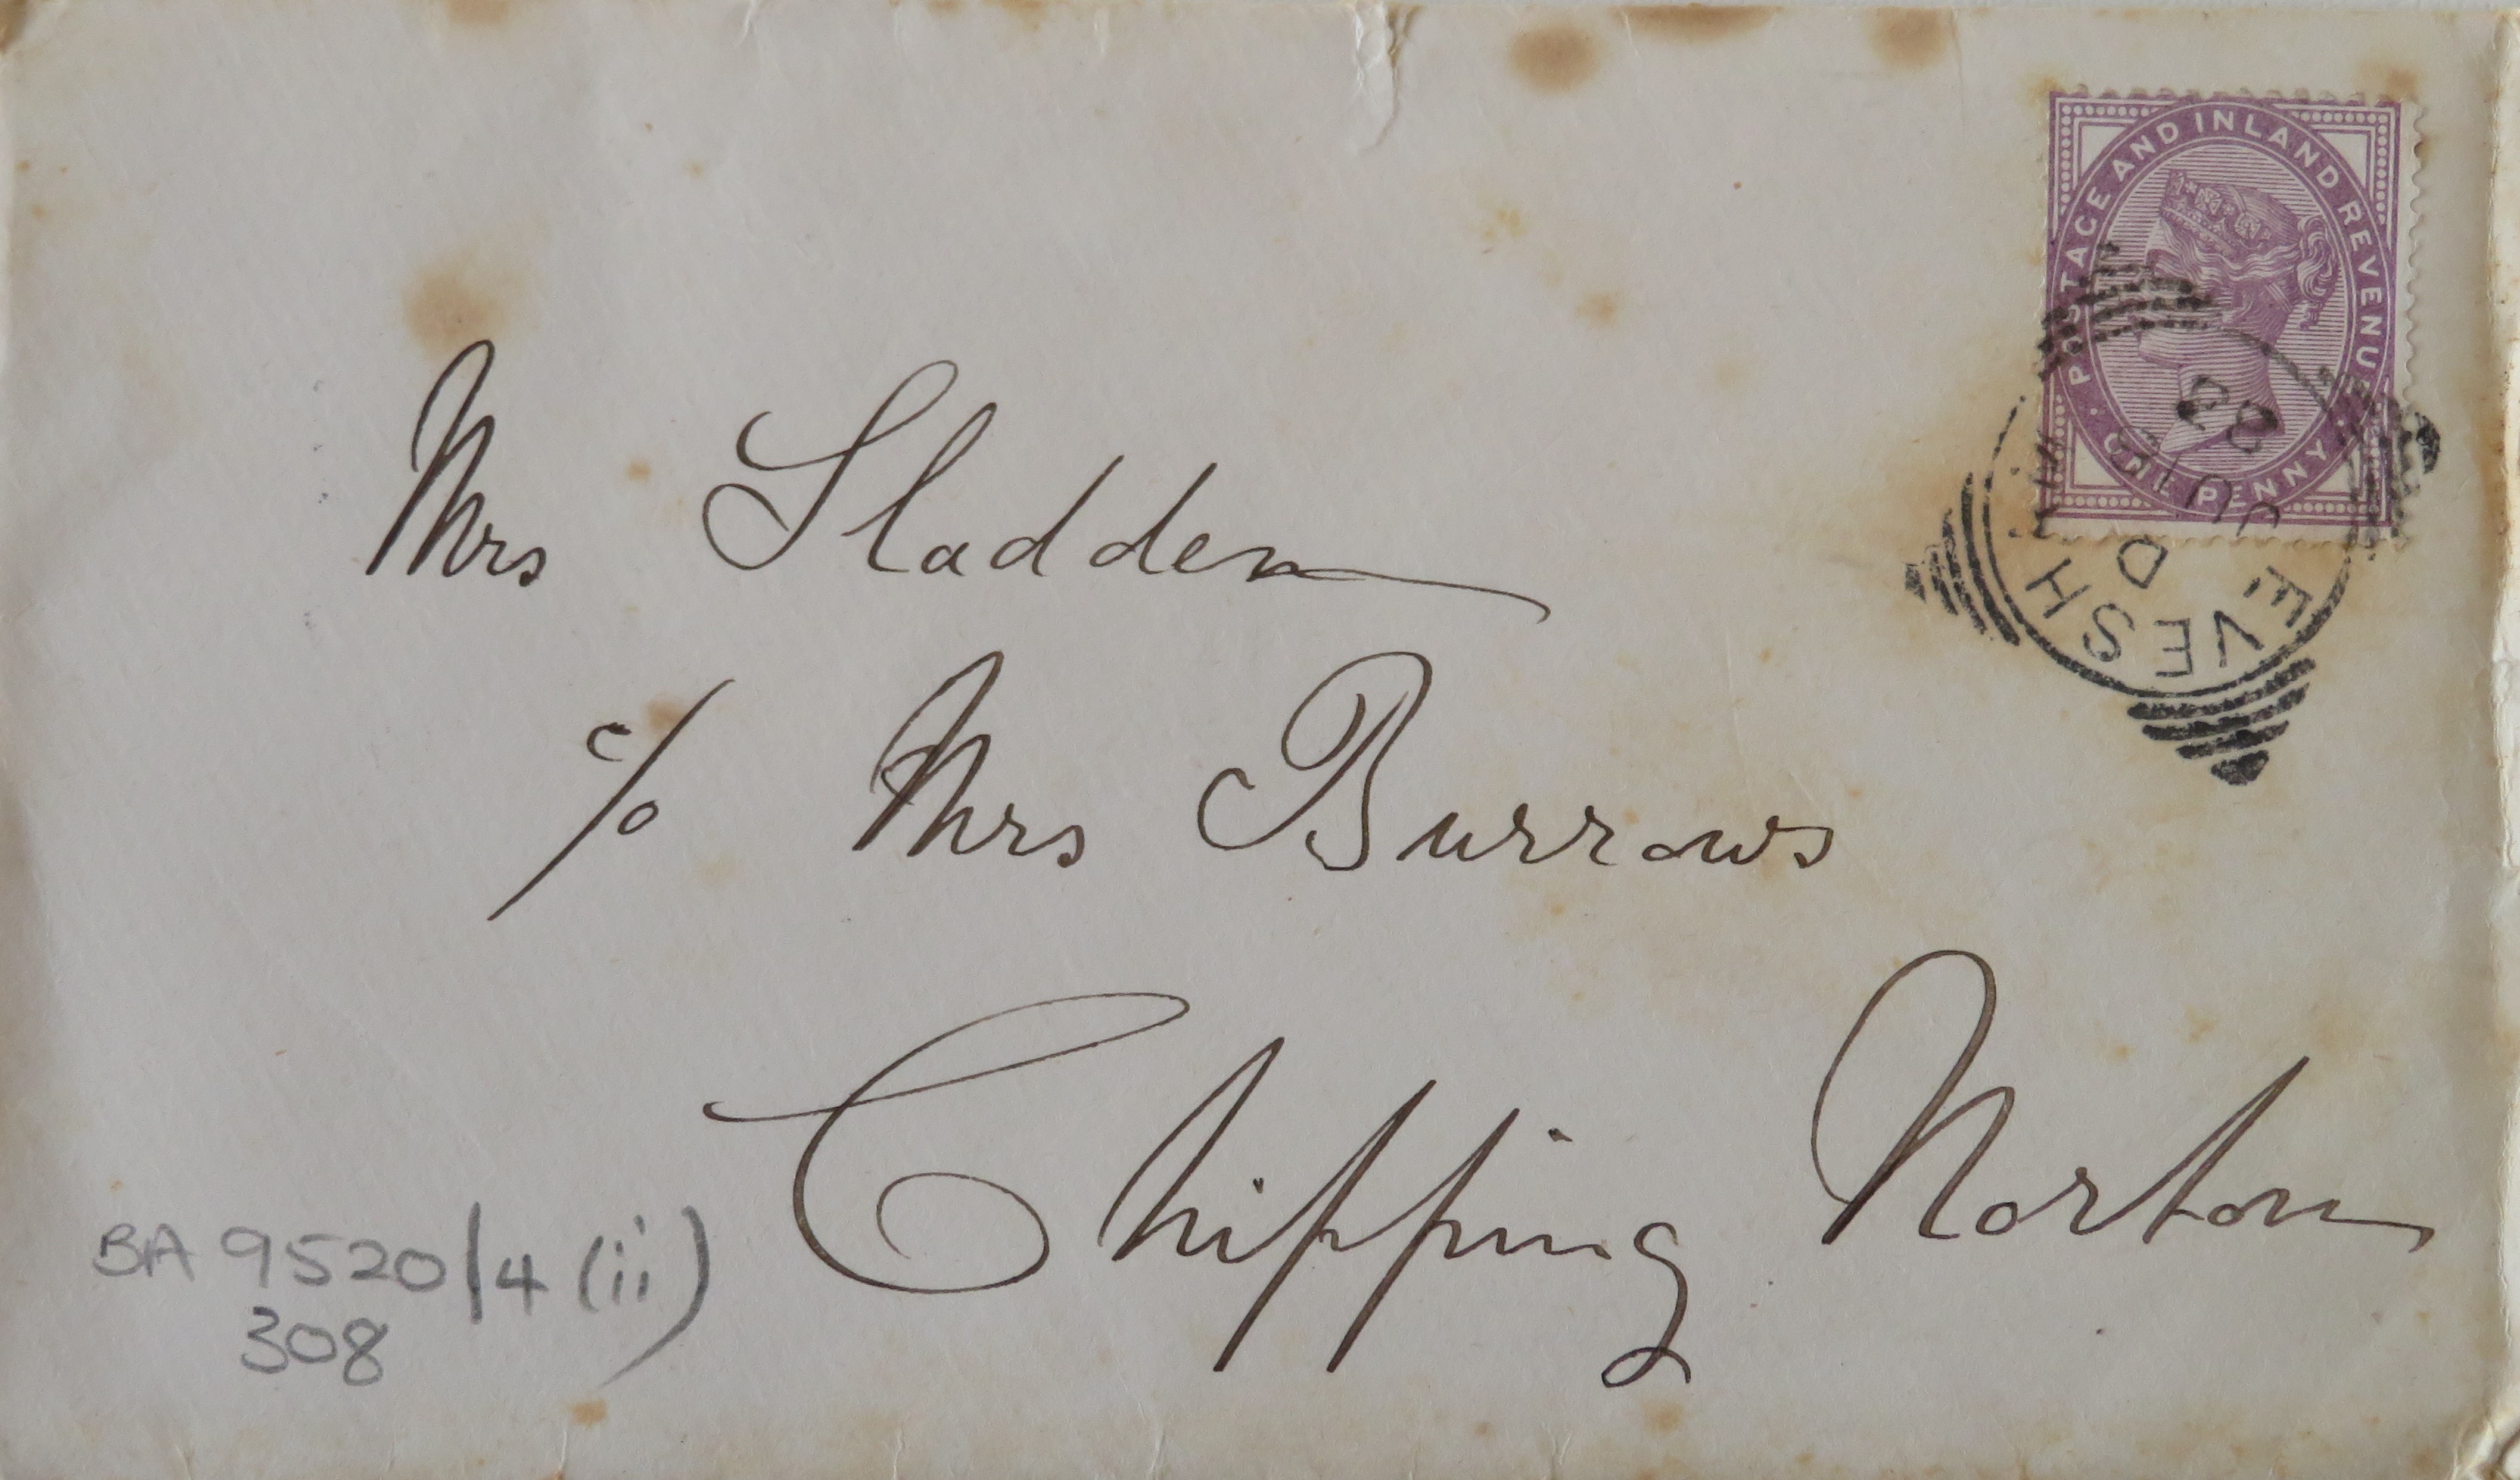 POSTAGE AND INLAND REVENUE
ONE PENNY
EVESH
D
JU
Mrs Sladden
c/o Mrs Burrows
Chipping Norton
BA 9520/4 (ii)
308